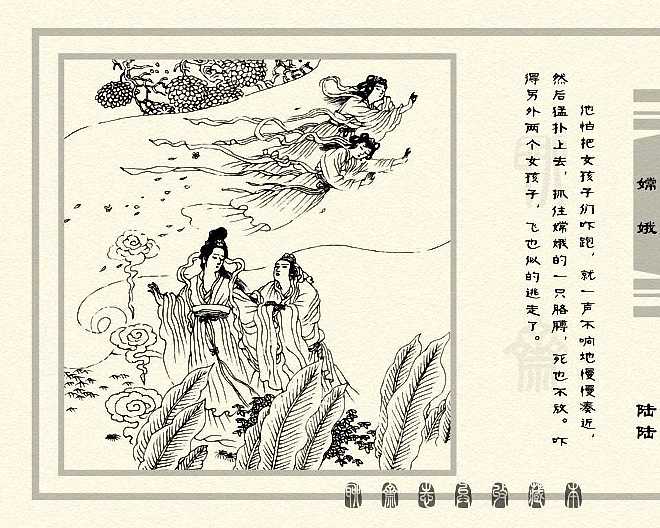 嫦娥
陆陆
他怕把女孩子们吓跑，就一声不响地慢慢凑近，
然后猛扑上去，抓住嫦娥的一只胳膊，死也不放。吓
得另外两个女孩子，飞也似的逃走了。